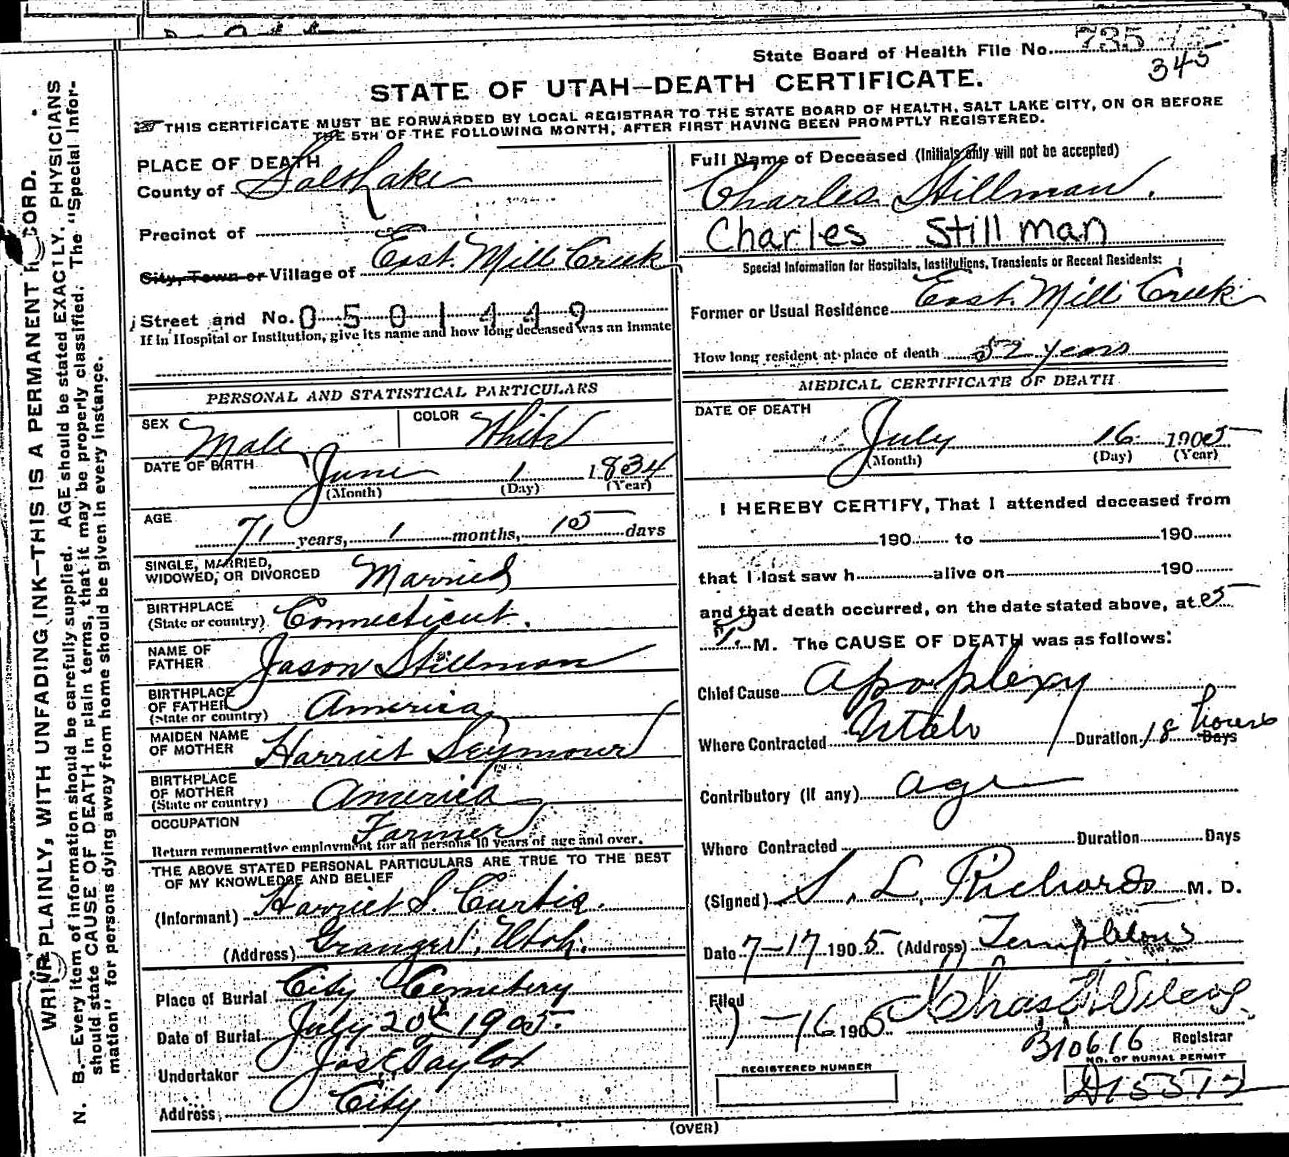 State Board of Health File No. 735
345
STATE OF UTAH—DEATH CERTIFICATE.
THIS CERTIFICATE MUST BE FORWARDED BY LOCAL REGISTRAR TO THE STATE BOARD OF HEALTH, SALT LAKE CITY, ON OR BEFORE
THE 5TH OF THE FOLLOWING MONTH, AFTER FIRST HAVING BEEN PROMPTLY REGISTERED.
PLACE OF DEATH
County of Salt Lake
Precinct of
City, Town or Village of East Mill Creek
Street and No. 0501449
If in Hospital or Institution, give its name and how long deceased was an Inmate
Full Name of Deceased (Initials only will not be accepted)
Charles Stillman.
Charles Stillman
Special Information for Hospitals, Institutions, Transients or Recent Residents:
Former or Usual Residence East Mill Creek
How long resident at place of death 52 years
PERSONAL AND STATISTICAL PARTICULARS
SEX Male COLOR White
DATE OF BIRTH June 1 1834
(Month) (Day) (Year)
AGE 71 years, 1 months, 15 days
SINGLE, MARRIED,
WIDOWED, OR DIVORCED Married
BIRTHPLACE
(State or country) Connecticut.
NAME OF
FATHER Jason Stillman
BIRTHPLACE
OF FATHER
(State or country) America
MAIDEN NAME
OF MOTHER Harriet Seymour
BIRTHPLACE
OF MOTHER
(State or country) America
OCCUPATION Farmer
Return remunerative employment for all persons 10 years of age and over.
THE ABOVE STATED PERSONAL PARTICULARS ARE TRUE TO THE BEST
OF MY KNOWLEDGE AND BELIEF
(Informant) Harriet S Curtis.
(Address) Granger, Utah.
Place of Burial City Cemetery
Date of Burial July 20th 1905.
Undertaker Jos E Taylor
Address, City
MEDICAL CERTIFICATE OF DEATH
DATE OF DEATH
July 16 1905
(Month) (Day) (Year)
I HEREBY CERTIFY, That I attended deceased from
190 to 190
that I last saw h alive on 190
and that death occurred, on the date stated above, at 5
P. M. The CAUSE OF DEATH was as follows:
Chief Cause Apoplexy
Where Contracted Utah Duration 18 hours Days
Contributory (if any) age
Where Contracted Duration Days
(Signed) S. L. Richards M. D.
Date 7-17 1905 (Address) Templeton
Filed 7-16 1905
Registrar
B10616
NO. OF BURIAL PERMIT
REGISTERED NUMBER
D15512
(OVER)
WRITE PLAINLY, WITH UNFADING INK—THIS IS A PERMANENT RECORD.
N. B.—Every item of information should be carefully supplied. AGE should be stated EXACTLY. PHYSICIANS
should state CAUSE OF DEATH in plain terms, that it may be properly classified. The "Special Infor-
mation" for persons dying away from home should be given in every instance.